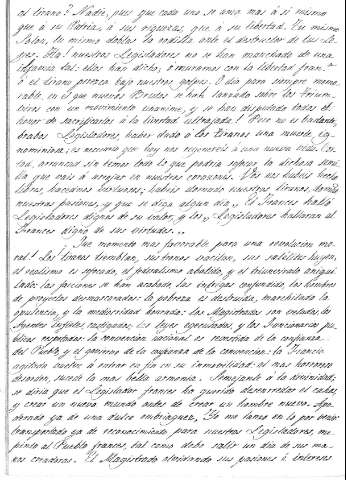 el tirano? Nadie, pues que cada uno se ama mas á si mismo
que á su Patria, á sus riquezas que á su libertad. Tu mismo
Solon, tu mismo doblas la rodilla ante el destructor de tus Le-
yes. Ha! nuestros Legisladores no se han manchado de una
infamia tal: ellos han dicho, ó muramos con la libertad fran.ª
ó el tirano perezca bajo nuestros golpes. O dia para siempre memo-
rable, en el que nuestros Brutos se han lanzado sobre los trium-
viros con un movimiento unánime, y se han disputado todos el
honor de sacrificarlos á la libertad ultrajada! Pero no es bastante,
bravos Legisladores, haber dado á los tiranos una muerte ig-
nominiosa; es necesario que hoy nos regenereis á una nueva vida. Cor-
tad, arrancad sin temor todo lo que podria sofocar la dichosa semi-
lla que vais á arrojar en nuestros corazones. Vos nos habeis hecho
libres, hacednos virtuosos; habeis domado nuestros tiranos, domad
nuestras pasiones, y que se diga algun dia, El Frances halló
Legisladores dignos de su valor, y los Legisladores hallaron al
Frances digno de sus virtudes...
¡Que momento mas favorable para una revolucion mo-
ral! Los tiranos tiemblan, sus tronos vacilan, sus satelites huyen,
el realismo es sofocado, el federalismo abatido, y el triunvirado aniqui-
lado; las facciones se han acabado, las intrigas confundidas, los hombres
de proyectos desmascarados: la pobreza es destruida, marchitada la
opulencia, y la mediocridad honrada: los Magistrados son
Agentes infieles castigados; las leyes egecutadas, y los Funcionarios pu-
blicos respetados: la convencion nacional es revestida de la confianza
del Pueblo, y el govierno de la confianza de la convencion: la Francia
agitada vuelve á entrar en fin en su inmobilidad: al mas horroroso
desorden, sucede la mas bella armonia. Semejante á la divinidad,
se diria que el Legislador frances ha querido desenredar el cahos,
y crear un nuevo mundo antes de crear un hombre nuevo.
ya de una dulce embriaguez, Yo me lanzo en lo por venir:
transportado ya de reconocimiento para nuestros Legisladores, me
pinto al Pueblo frances, tal como debe salir un dia de sus ma-
nos creadoras. El Magistrado olvidando sus pasiones é intereses